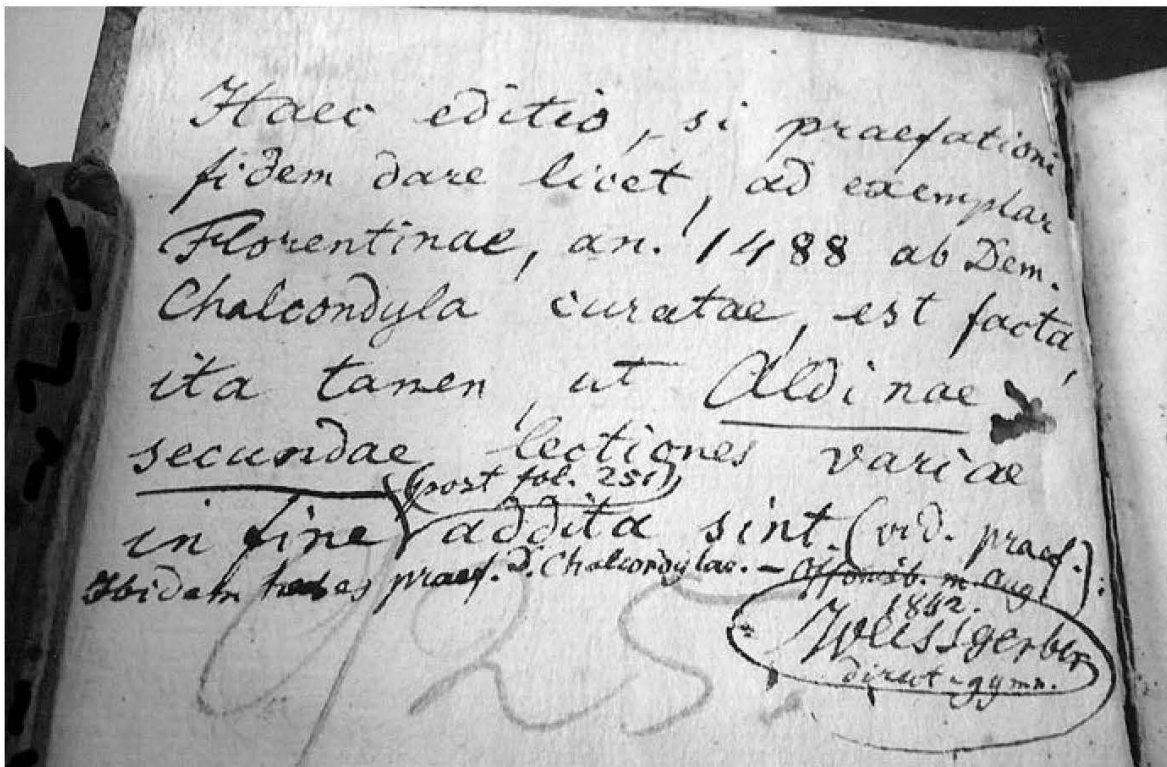 Haec editio, si praefationi
fidem dare licet, ad exemplar
Florentinae, an. 1488 ab Dem.
Chalcondyla curatae, est facta,
ita tamen, ut Aldinae
secundae lectiones variae
(post fol. 251)
in fine addita sint. (vid. praef.).
Ibidem habes praef. D. Chalcondylae. – Offonisb. m. Aug.
1842.
Weissgerber
direct. gymn.
925.